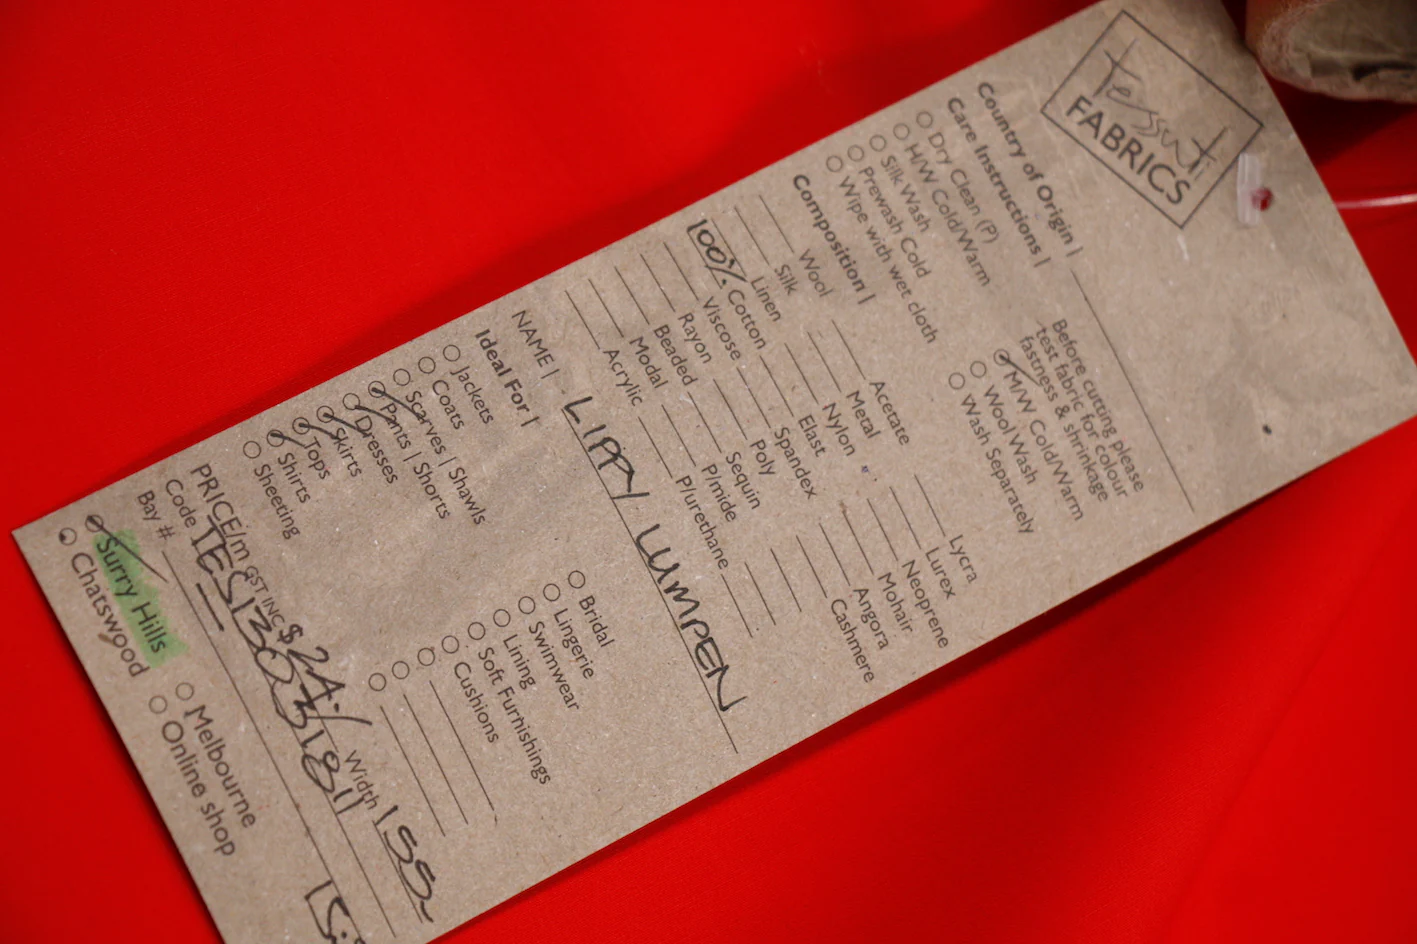 Tessuti
FABRICS
Country of Origin |
Care Instructions |
Dry Clean (P)
H/W Cold/Warm
Silk Wash
Prewash Cold
Wipe with wet cloth
Before cutting please
test fabric for colour
fastness & shrinkage
M/W Cold/Warm
Wool Wash
Wash Separately
Composition |
Wool Acetate Lycra
Silk Metal Lurex
Linen Nylon Neoprene
100% Cotton Elast Mohair
Viscose Spandex Angora
Rayon Poly Cashmere
Beaded Sequin
Modal P/mide
Acrylic P/urethane
NAME | LIPPY LUMPEN
Ideal For |
Jackets Bridal
Coats Lingerie
Scarves | Shawls Swimwear
Pants | Shorts Lining
Dresses Soft Furnishings
Skirts Cushions
Tops
Shirts
Sheeting
PRICE/m GST INC $24.- Width 155
Code
Bay #
Surry Hills Melbourne
Chatswood Online shop